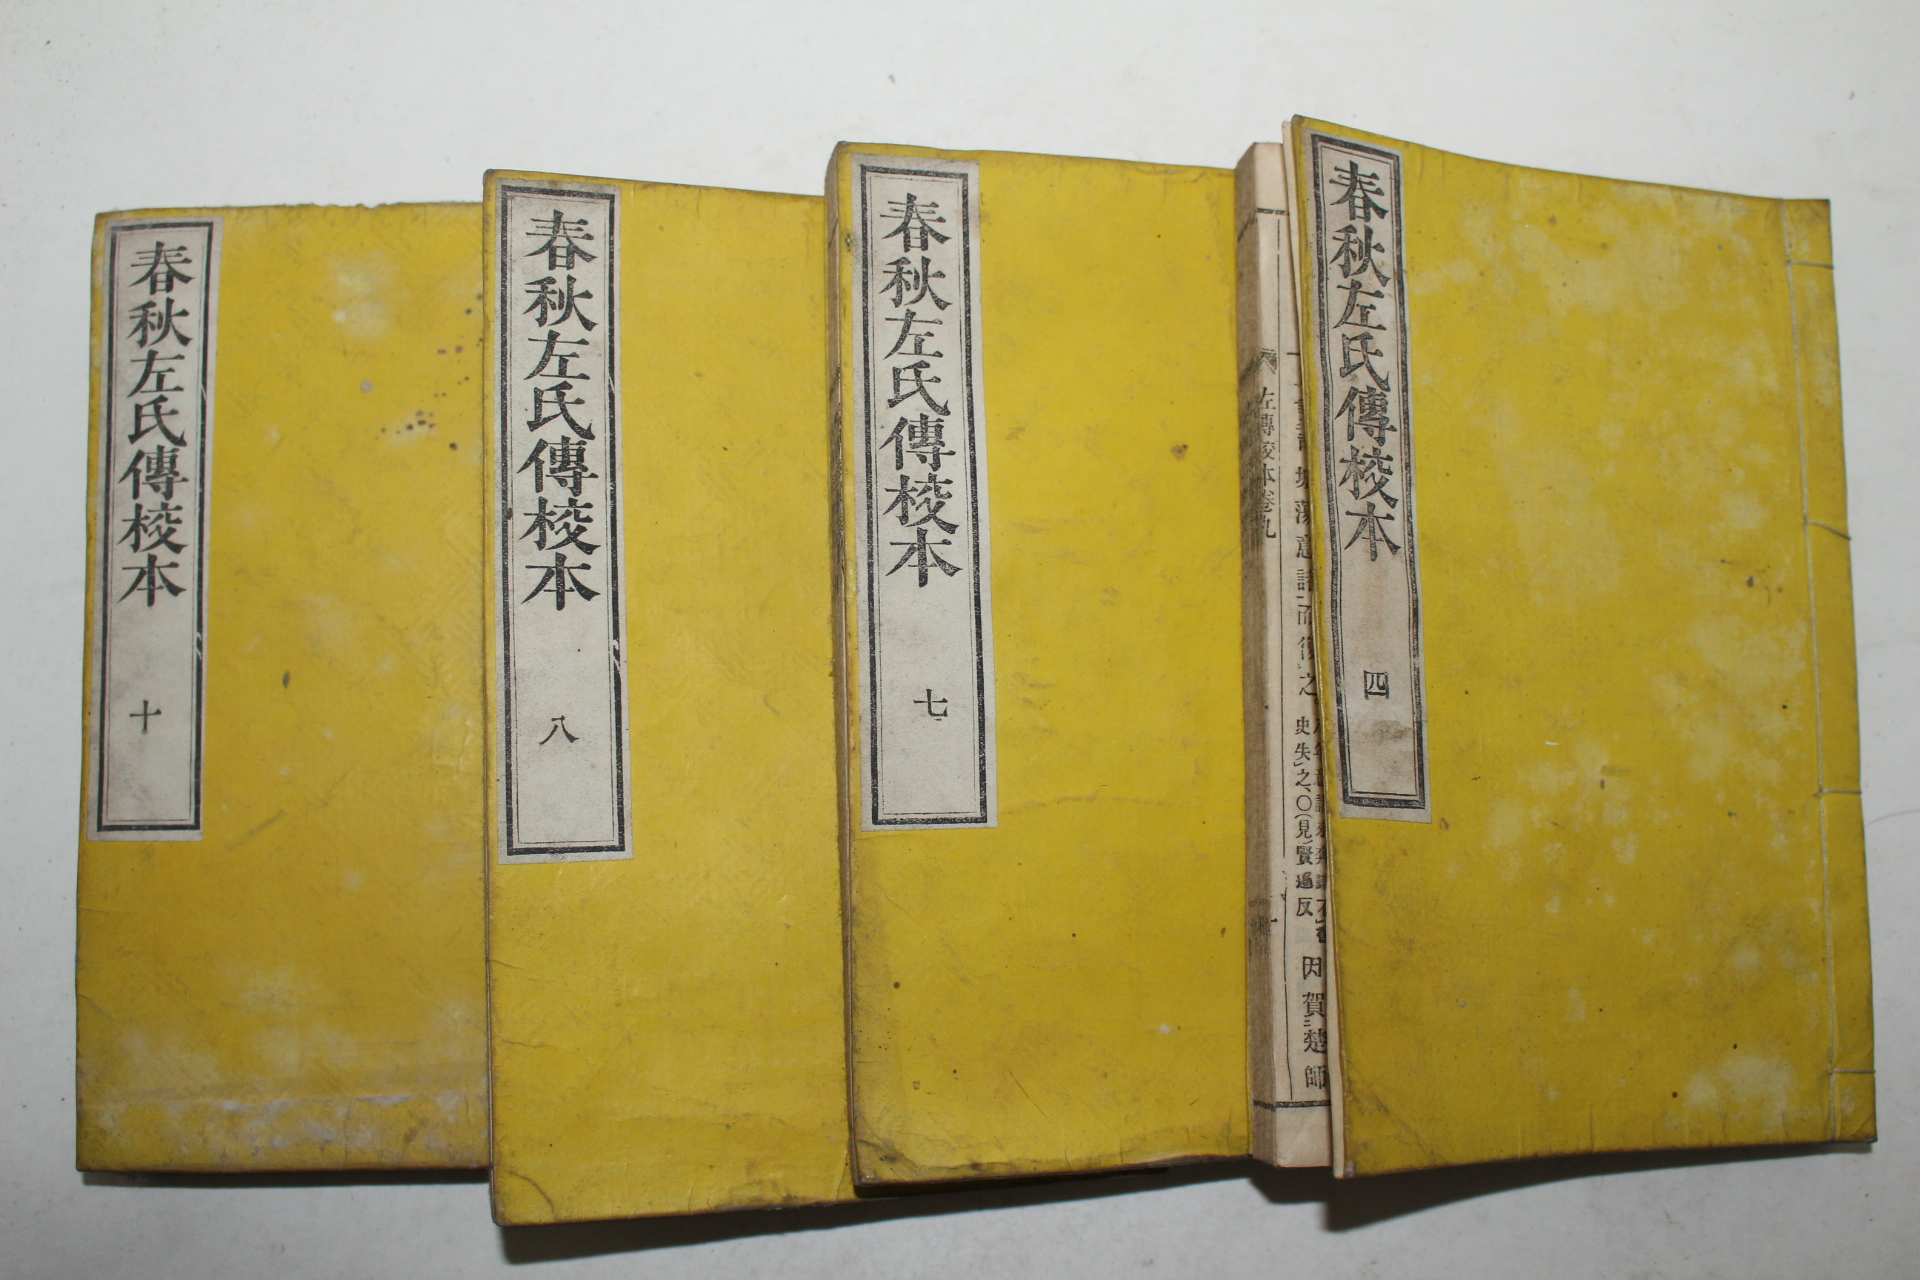 春秋左氏傳校本
四
左傳校本卷九
蕩意諸
而後之
史失之○(見)賢遍反
因賀楚師
春秋左氏傳校本
七
春秋左氏傳校本
八
春秋左氏傳校本
十